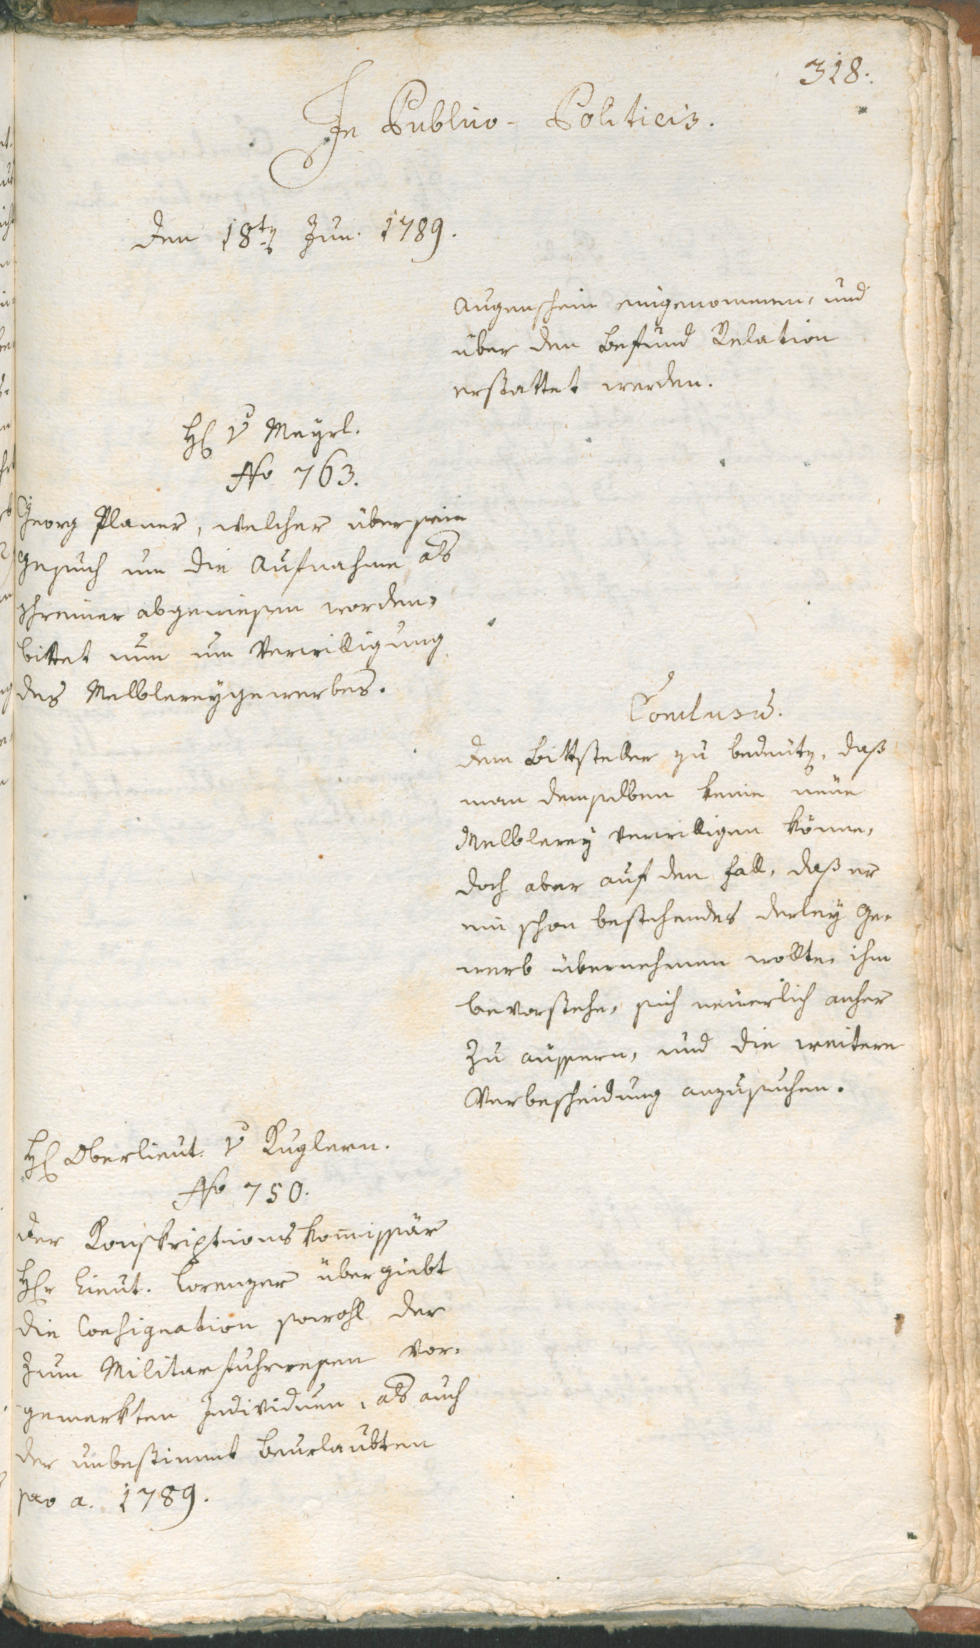 318.
In Publico-Politicis.
Den 18ten Jun. 1789.
Augenschein eingenommen, und
über den Befund Relation
erstattet werden.
H. v Mayrl.
No 763.
Georg Planer, welcher über sein
Gesuch um die Aufnahme als
abgewiesen worden,
bittet nun um Verwilligung
des Melblereygewerbes.
Conclusum.
Dem Bittsteller zu bedeuten, daß
man demselben keine neue
Melblerey verwilligen könne,
doch aber auf den Fall, daß er
ein schon bestehendes derley Ge-
werb übernehmen wollte, ihm
bevorstehe, sich neuerlich anher
zu äussern, und die weitere
Verbescheidung anzusuchen.
H. Oberlieut. v Kuglern.
No 750.
Der Konskriptionskommissär
Hr Lieut. Lorenzer übergiebt
die Consignation sowohl der
zum Militarfuhrwesen vor-
gemerkten Individuen, als auch
der unbestimmt Beurlaubten
pro a. 1789.